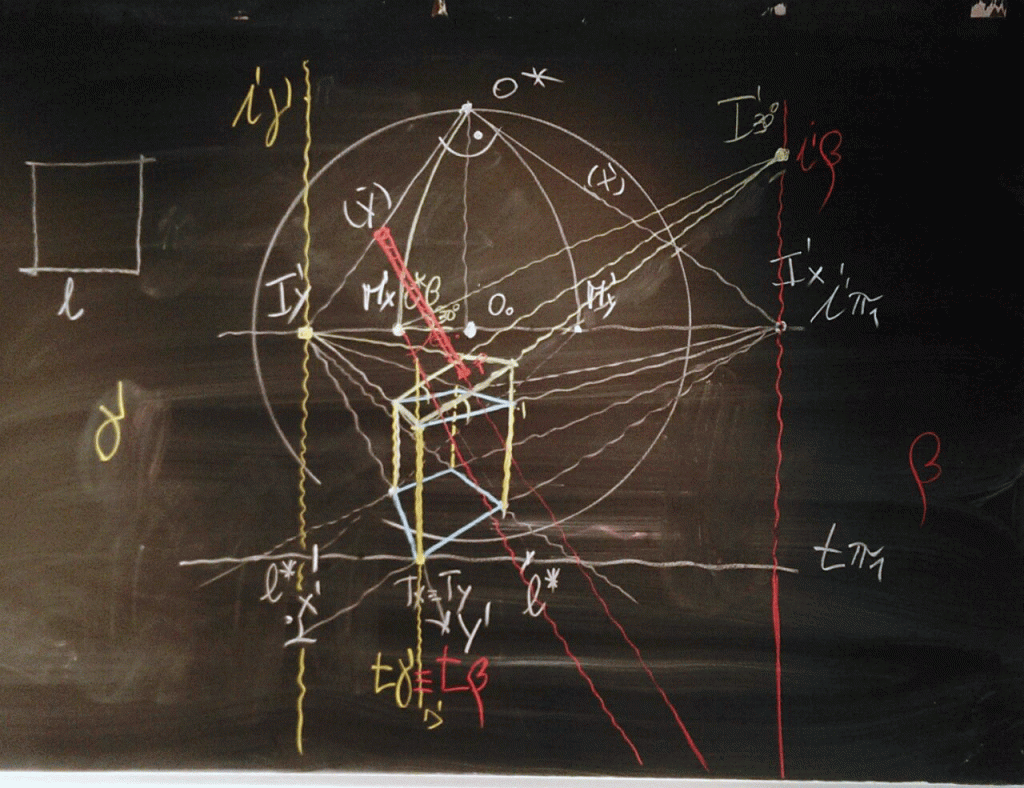 O*
i'γ
I'30°
i'β
(x)
(y)
I'y
Mx
30°
O₀
M'y
I'x
i'π₁
l
γ
β
tπ₁
l*
x'
Tx≡Ty
l*
y'
tγ≡tβ